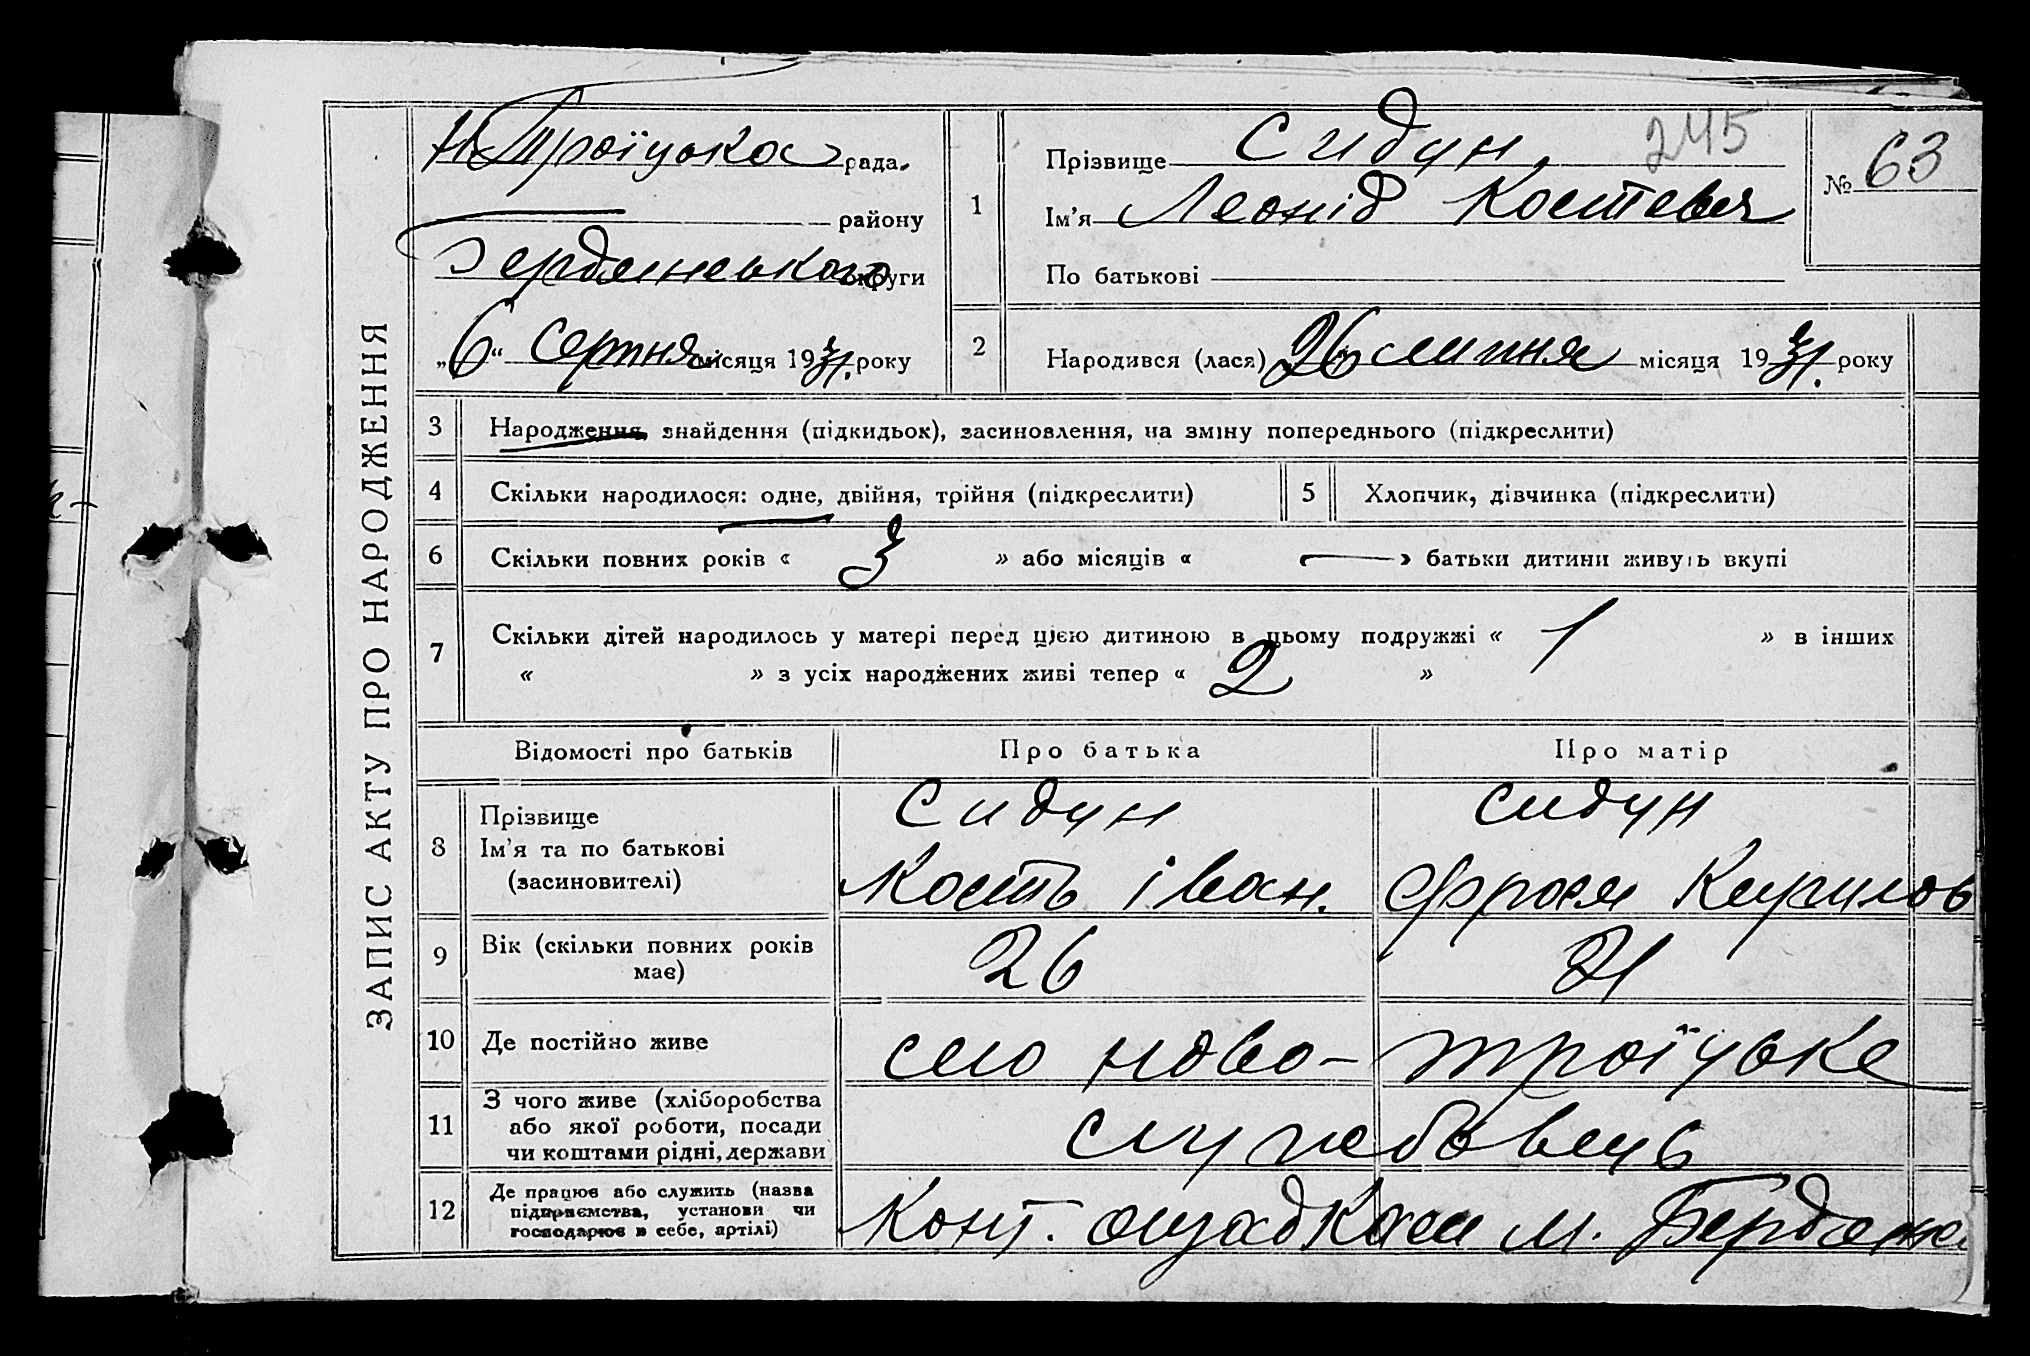 ЗАПИС АКТУ ПРО НАРОДЖЕННЯ
Н.Троїцька рада
району
Бердянського округи
„6“ Серпня місяця 1931. року
1
Прізвище Сидун 245
Ім'я Леонід Костевич
По батькові
№ 63
2
Народився (лася) 26 липня місяця 1931. року
3 Народження, знайдення (підкидьок), засиновлення, на зміну попереднього (підкреслити)
4 Скільки народилося: одне, двійня, трійня (підкреслити)
5 Хлопчик, дівчинка (підкреслити)
6 Скільки повних років « 3 » або місяців « — » батьки дитини живуть вкупі
7 Скільки дітей народилось у матері перед цією дитиною в цьому подружжі « 1 » в інших
« » з усіх народжених живі тепер « 2 »
Відомості про батьків Про батька Про матір
8 Прізвище Сидун Сидун
Ім'я та по батькові Кость Іван. Кирилов
(засиновителі)
9 Вік (скільки повних років має) 26 21
10 Де постійно живе село Ново-Троїцьке
11 З чого живе (хліборобства
або якої роботи, посади
чи коштами рідні, держави службовець
12 Де працює або служить (назва
підприємства, установи чи
господарює в себе, артілі) Конт. ощадкаси м. Бердянс